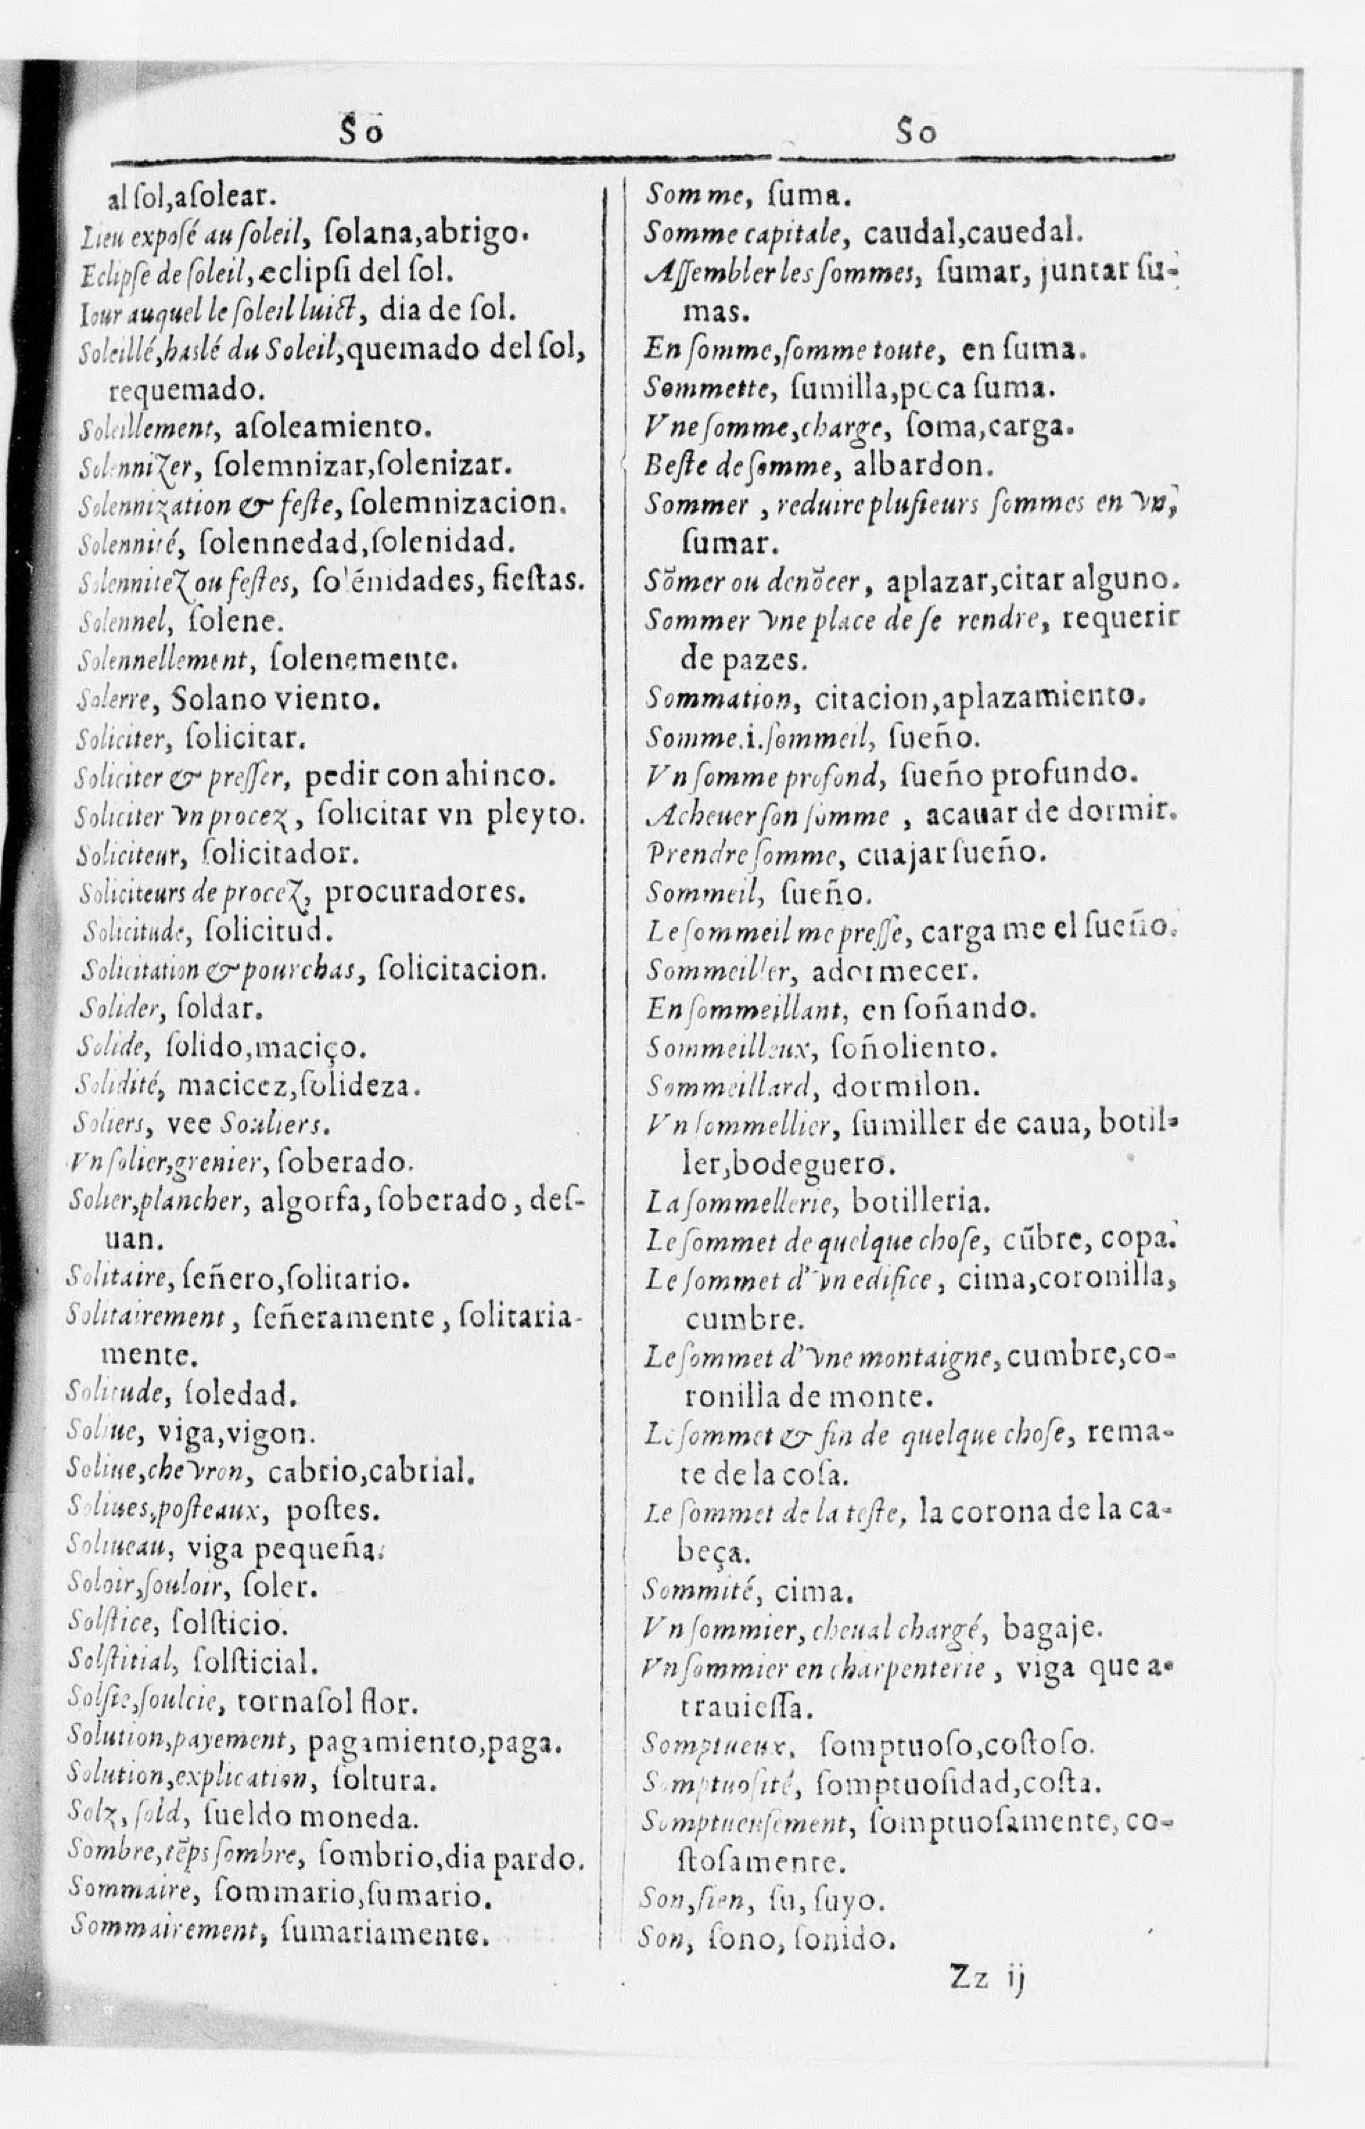 So
al ſol,aſolear.
Lieu expoſé au ſoleil, ſolana,abrigo.
Eclipſe de ſoleil, eclipſi del ſol.
Iour auquel le ſoleil luict, dia de ſol.
Soleillé,haslé du Soleil,quemado del ſol,
requemado.
Soleillement, aſoleamiento.
Solennizer, ſolemnizar,ſolenizar.
Solennization & feſte, ſolemnizacion.
Solennité, ſolennedad,ſolenidad.
Solennitez ou feſtes, ſolẽnidades, fieſtas.
Solennel, ſolene.
Solennellement, ſolenemente.
Solerre, Solano viento.
Soliciter, ſolicitar.
Soliciter & preſſer, pedir con ahinco.
Soliciter vn procez, ſolicitar vn pleyto.
Soliciteur, ſolicitador.
Soliciteurs de procez, procuradores.
Solicitude, ſolicitud.
Solicitation & pourchas, ſolicitacion.
Solider, ſoldar.
Solide, ſolido,maciço.
Solidité, macicez,ſolideza.
Soliers, vee Souliers.
Vn ſolier,grenier, ſoberado.
Solier,plancher, algorfa, ſoberado, deſ-
uan.
Solitaire, ſeñero,ſolitario.
Solitairement, ſeñeramente, ſolitaria-
mente.
Solitude, ſoledad.
Soliue, viga,vigon.
Soliue,chevron, cabrio,cabrial.
Soliues,poſteaux, poſtes.
Soliueau, viga pequeña.
Soloir,ſouloir, ſoler.
Solſtice, ſolſticio.
Solſtitial, ſolſticial.
Solſie,ſoulcie, tornaſol flor.
Solution,payement, pagamiento,paga.
Solution,explication, ſoltura.
Solz, ſold, ſueldo moneda.
Sombre,tẽps ſombre, ſombrio,dia pardo.
Sommaire, ſommario,ſumario.
Sommairement, ſumariamente.
So
Somme, ſuma.
Somme capitale, caudal,cauedal.
Aſſembler les ſommes, ſumar, juntar ſu-
mas.
En ſomme,ſomme toute, en ſuma.
Sommette, ſumilla,poca ſuma.
Vne ſomme,charge, ſoma,carga.
Beſte de ſomme, albardon.
Sommer, reduire pluſieurs ſommes en vn,
ſumar.
Sõmer ou denõcer, aplazar,citar alguno.
Sommer vne place de ſe rendre, requerir
de pazes.
Sommation, citacion,aplazamiento.
Somme.i.ſommeil, ſueño.
Vn ſomme profond, ſueño profundo.
Acheuer ſon ſomme, acauar de dormir.
Prendre ſomme, cuajar ſueño.
Sommeil, ſueño.
Le ſommeil me preſſe, carga me el ſueño.
Sommeiller, adormecer.
En ſommeillant, en ſoñando.
Sommeilleux, ſoñoliento.
Sommeillard, dormilon.
Vn ſommellier, ſumiller de caua, botil-
ler,bodeguero.
La ſommellerie, botilleria.
Le ſommet de quelque choſe, cũbre, copa.
Le ſommet d'vn edifice, cima,coronilla,
cumbre.
Le ſommet d'vne montaigne, cumbre,co-
ronilla de monte.
Le ſommet & fin de quelque choſe, rema-
te de la coſa.
Le ſommet de la teſte, la corona de la ca-
beça.
Sommité, cima.
Vn ſommier, cheual chargé, bagaje.
Vn ſommier en charpenterie, viga que a-
trauieſſa.
Somptueux, ſomptuoſo,coſtoſo.
Somptuoſité, ſomptuoſidad,coſta.
Somptueuſement, ſomptuoſamente, co-
ſtoſamente.
Son,ſien, ſu, ſuyo.
Son, ſono, ſonido.
Zz ij